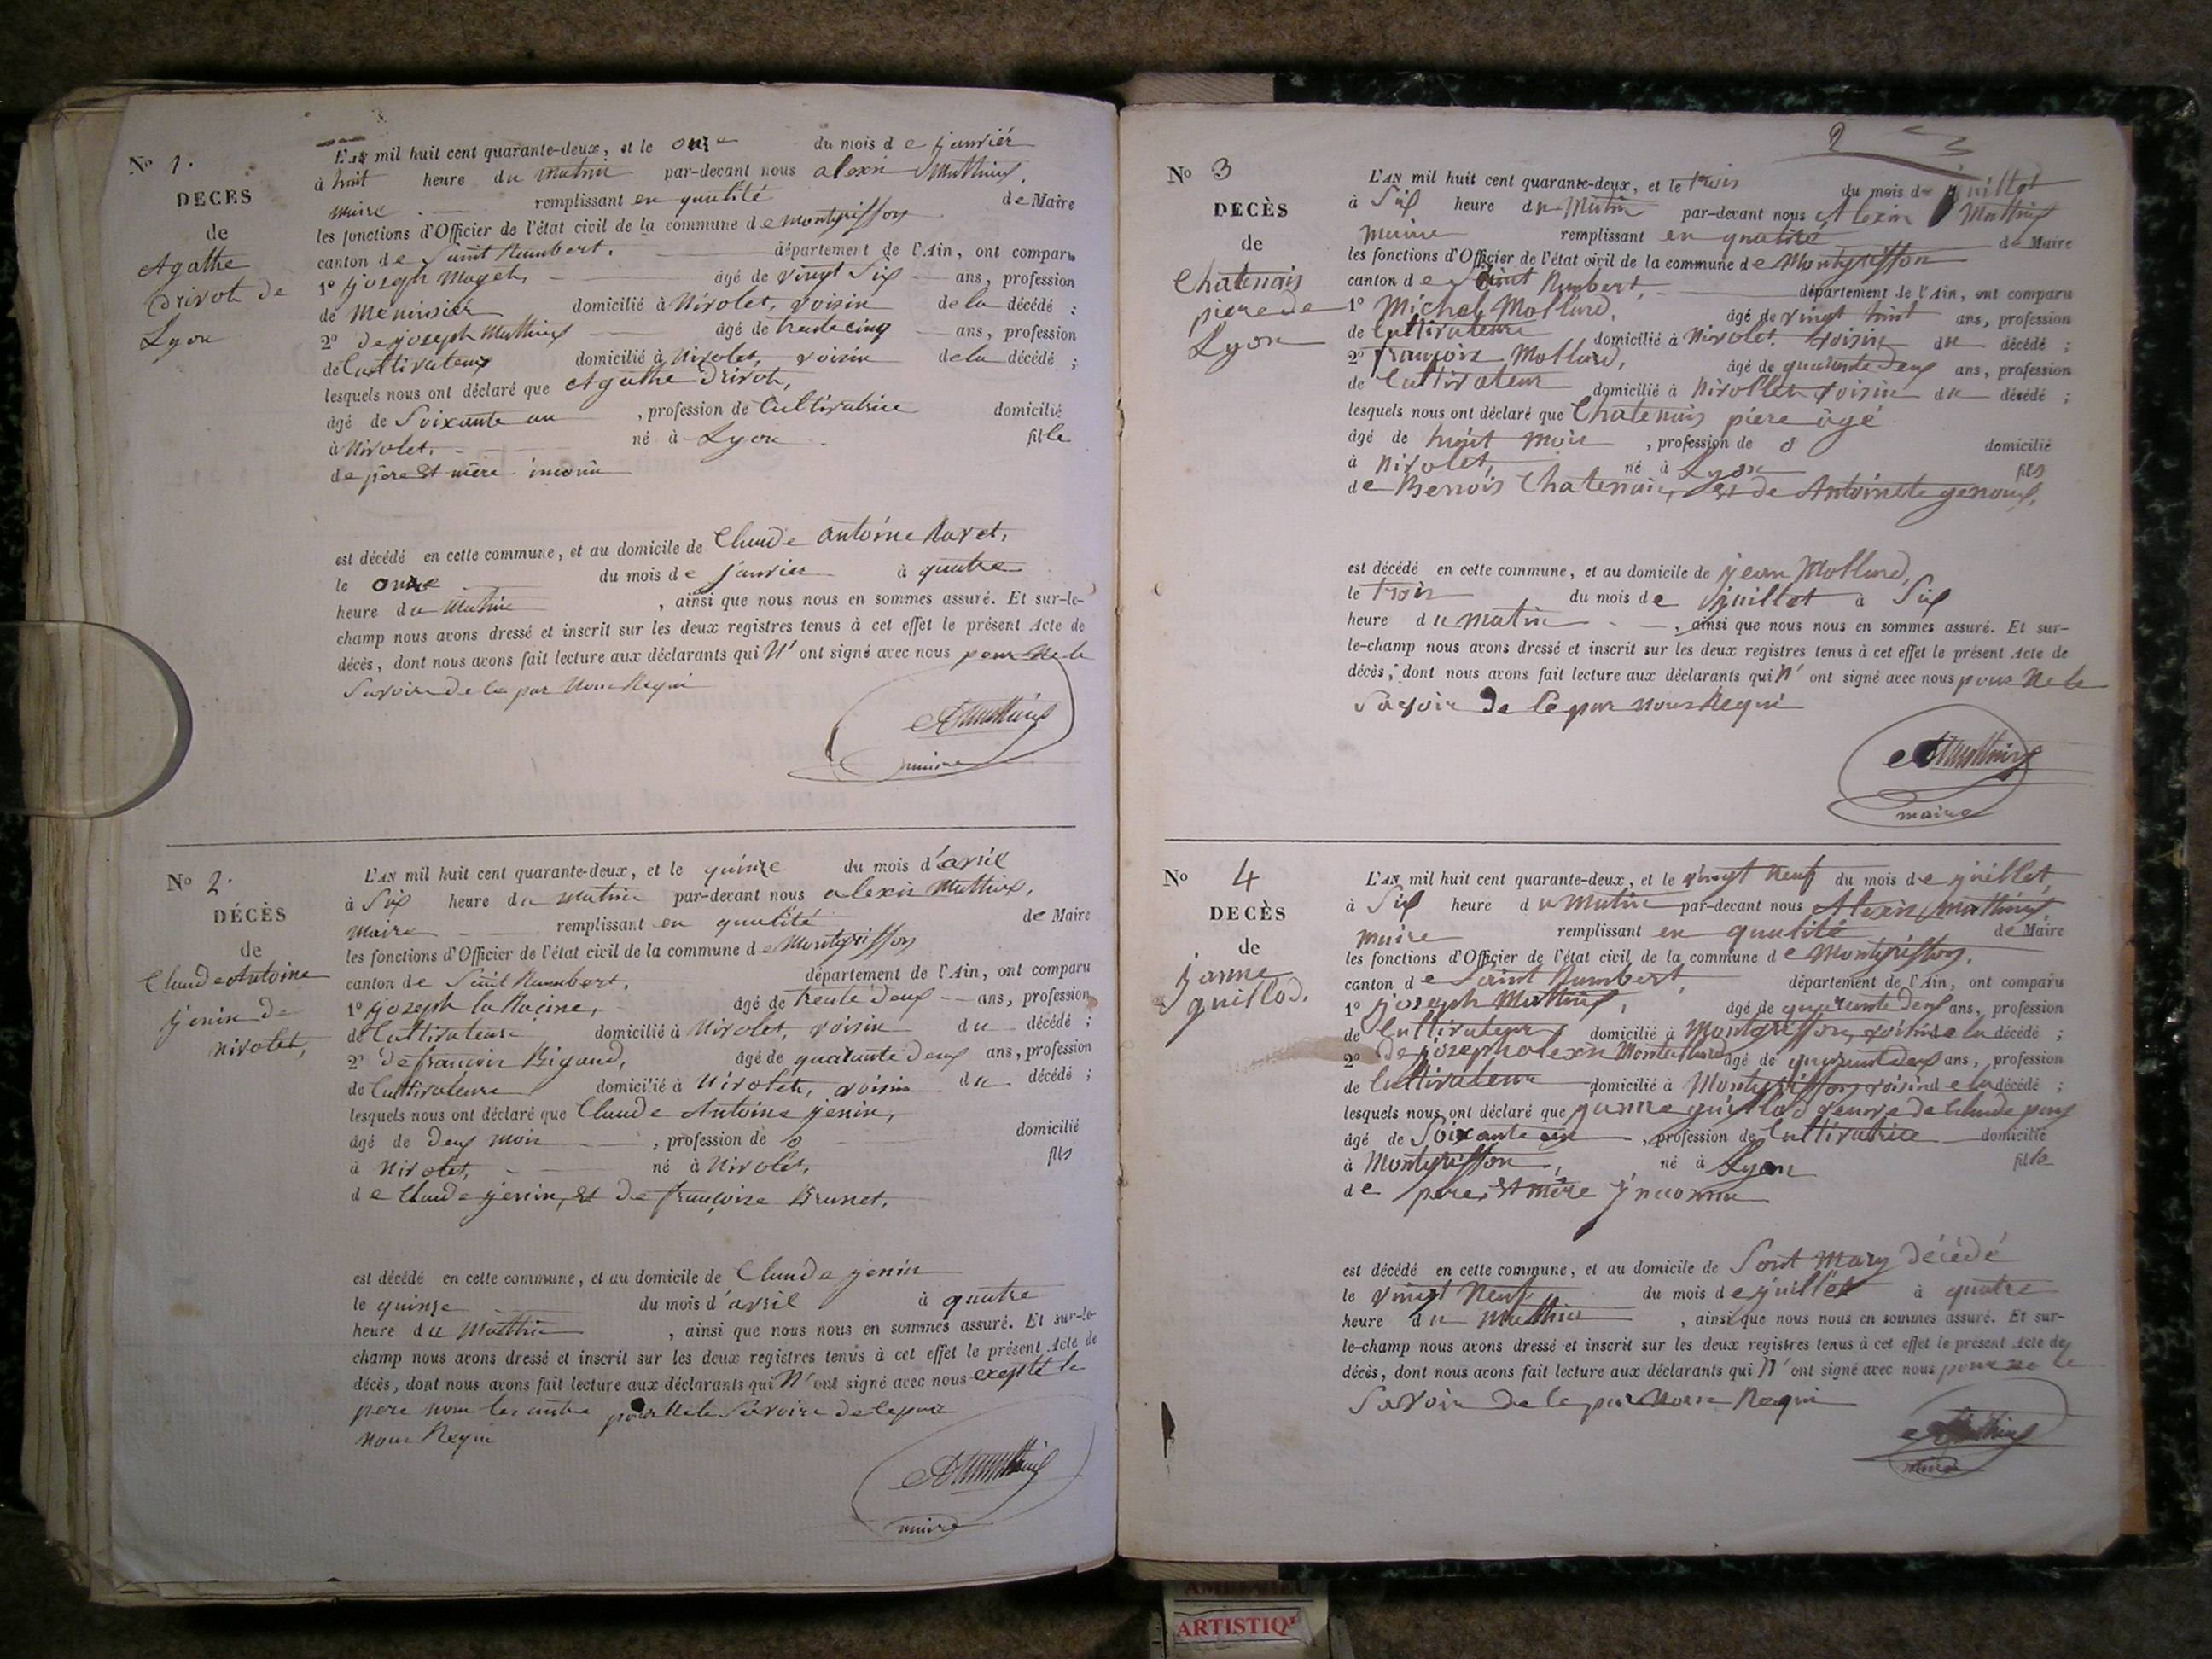 No 1.
DECES
de
Agathe
Drivot de
Lyon
L'AN mil huit cent quarante-deux, et le onze du mois de janvier
à huit heure du matin par-devant nous alexis Mathieux,
maire remplissant en qualité de Maire
les fonctions d'Officier de l'état civil de la commune de montgriffon
canton de Saint Rambert, département de l'Ain, ont comparu
1º joseph Moget, âgé de vingt Six ans, profession
de Menuisier domicilié à Nivolet, voisin de la décédé ;
2º de joseph Mathieux âgé de trente cinq ans, profession
de Cultivateur domicilié à Nivolet, voisin de la décédé ;
lesquels nous ont déclaré que Agathe Drivot,
âgé de Soixante an , profession de Cultivatrice domicilié
à Nivolet, né à Lyon fille
de père et mère inconnu
est décédé en cette commune, et au domicile de Claude antoine
le onze du mois de janvier à quatre
heure du Matin , ainsi que nous nous en sommes assuré. Et sur-le-
champ nous avons dressé et inscrit sur les deux registres tenus à cet effet le présent Acte de
décès, dont nous avons fait lecture aux déclarants qui N' ont signé avec nous pour ne le
Savoir de ce par Nous Requi
AMathieux
maire
No 2.
DÉCÈS
de
Claude Antoine
jenin de
nivolet,
L'AN mil huit cent quarante-deux, et le quinze du mois d'avril
à Six heure du matin par-devant nous alexis Mathieux,
maire remplissant en qualité de Maire
les fonctions d'Officier de l'état civil de la commune de Montgriffon
canton de Saint Rambert, département de l'Ain, ont comparu
1º joseph la Racine, âgé de trente deux ans, profession
de Cultivateur domicilié à Nivolet, voisin du décédé ;
2º de francois Rigaud, âgé de quarante deux ans, profession
de Cultivateur domicilié à Nivolet, voisin du décédé ;
lesquels nous ont déclaré que Claude Antoine jenin,
âgé de deux mois , profession de 0 domicilié
à Nivolet, né à Nivolet, fils
de Claude jenin, et de françoise Brunet,
est décédé en cette commune, et au domicile de Claude jenin
le quinze du mois d'avril à quatre
heure du Matin , ainsi que nous nous en sommes assuré. Et sur-le
champ nous avons dressé et inscrit sur les deux registres tenus à cet effet le présent Acte de
décès, dont nous avons fait lecture aux déclarants qui N' ont signé avec nous excepté le
pere nom les autre pour ne le Savoire de ce par
nous Requi
AMathieux
maire
2
No 3
DÉCÈS
de
Chatenais
piere de
Lyon
L'AN mil huit cent quarante-deux, et le trois du mois de juillet
à Six heure du Matin par-devant nous Alexis Mathieux
Maire remplissant en qualité de Maire
les fonctions d'Officier de l'état civil de la commune de Montgriffon
canton de Saint Rambert, département de l'Ain, ont comparu
1º Michel Mollard, âgé de vingt huit ans, profession
de Cultivateur domicilié à Nivolet, voisin du décédé ;
2º françois Mollard, âgé de quarante deux ans, profession
de Cultivateur domicilié à Nivollet voisin du décédé ;
lesquels nous ont déclaré que Chatenais piere âgé
âgé de huit mois , profession de 0 domicilié
à Nivolet, né à Lyon fils
de Benois Chatenais, et de Antoinette genoux,
est décédé en cette commune, et au domicile de jean Mollard,
le trois du mois de juillet à Six
heure du matin , ainsi que nous nous en sommes assuré. Et sur-
le-champ nous avons dressé et inscrit sur les deux registres tenus à cet effet le présent Acte de
décès, dont nous avons fait lecture aux déclarants qui N' ont signé avec nous pour ne le
Savoir de ce par nous Requi
AMathieux
maire
No 4
DECÈS
de
janne
guillod.
L'AN mil huit cent quarante-deux, et le vingt neuf du mois de juillet
à Six heure du Matin par-devant nous Alexis Mathieux
maire remplissant en qualité de Maire
les fonctions d'Officier de l'état civil de la commune de Montgriffon,
canton de Saint Rambert, département de l'Ain, ont comparu
1º joseph Mathieux, âgé de quarante deux ans, profession
de Cultivateur domicilié à Montgriffon, voisin de la décédé ;
2º de joseph alexis âgé de quarante deux ans, profession
de Cultivateur domicilié à Montgriffon voisin de la décédé ;
lesquels nous ont déclaré que janne guillod veuve de Claude
âgé de Soixante , profession de Cultivatrice domicilié
à Montgriffon, né à Lyon fille
de pere et mère
est décédé en cette commune, et au domicile de Sont Mary décédé
le vingt Neuf du mois de juillet à quatre
heure du Mathin , ainsi que nous nous en sommes assuré. Et sur-
le-champ nous avons dressé et inscrit sur les deux registres tenus à cet effet le présent Acte de
décès, dont nous avons fait lecture aux déclarants qui N' ont signé avec nous pour ne le
Savoir de ce par Nous Requi
AMathieux
maire
ARTISTIQU